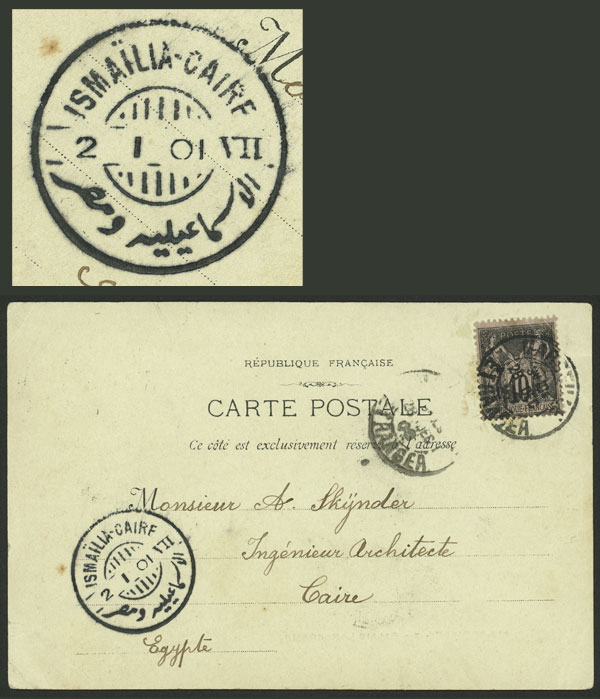 ISMAÏLIA-CAIRE
2 I 01 VII
اسماعيليه ومصر
RÉPUBLIQUE FRANÇAISE
CARTE POSTALE
Ce côté est exclusivement réservé à l'adresse
ETRANGER
10
Monsieur A. Skÿnder
Ingénieur Architecte
Caire
Egypte
ISMAÏLIA-CAIRE
2 I 01 VII
اسماعيليه ومصر